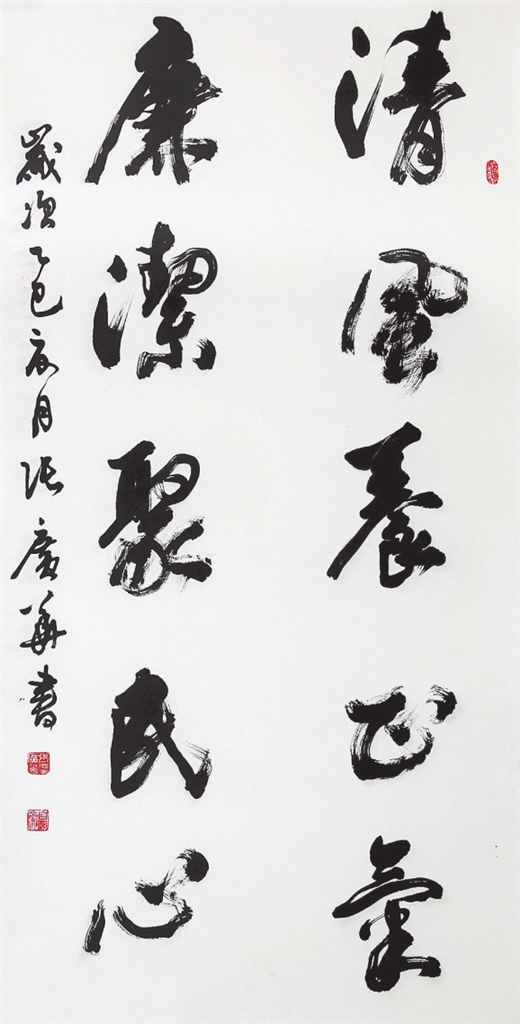 清風養正氣
廉潔聚民心
歲次乙巳之月張廣華書